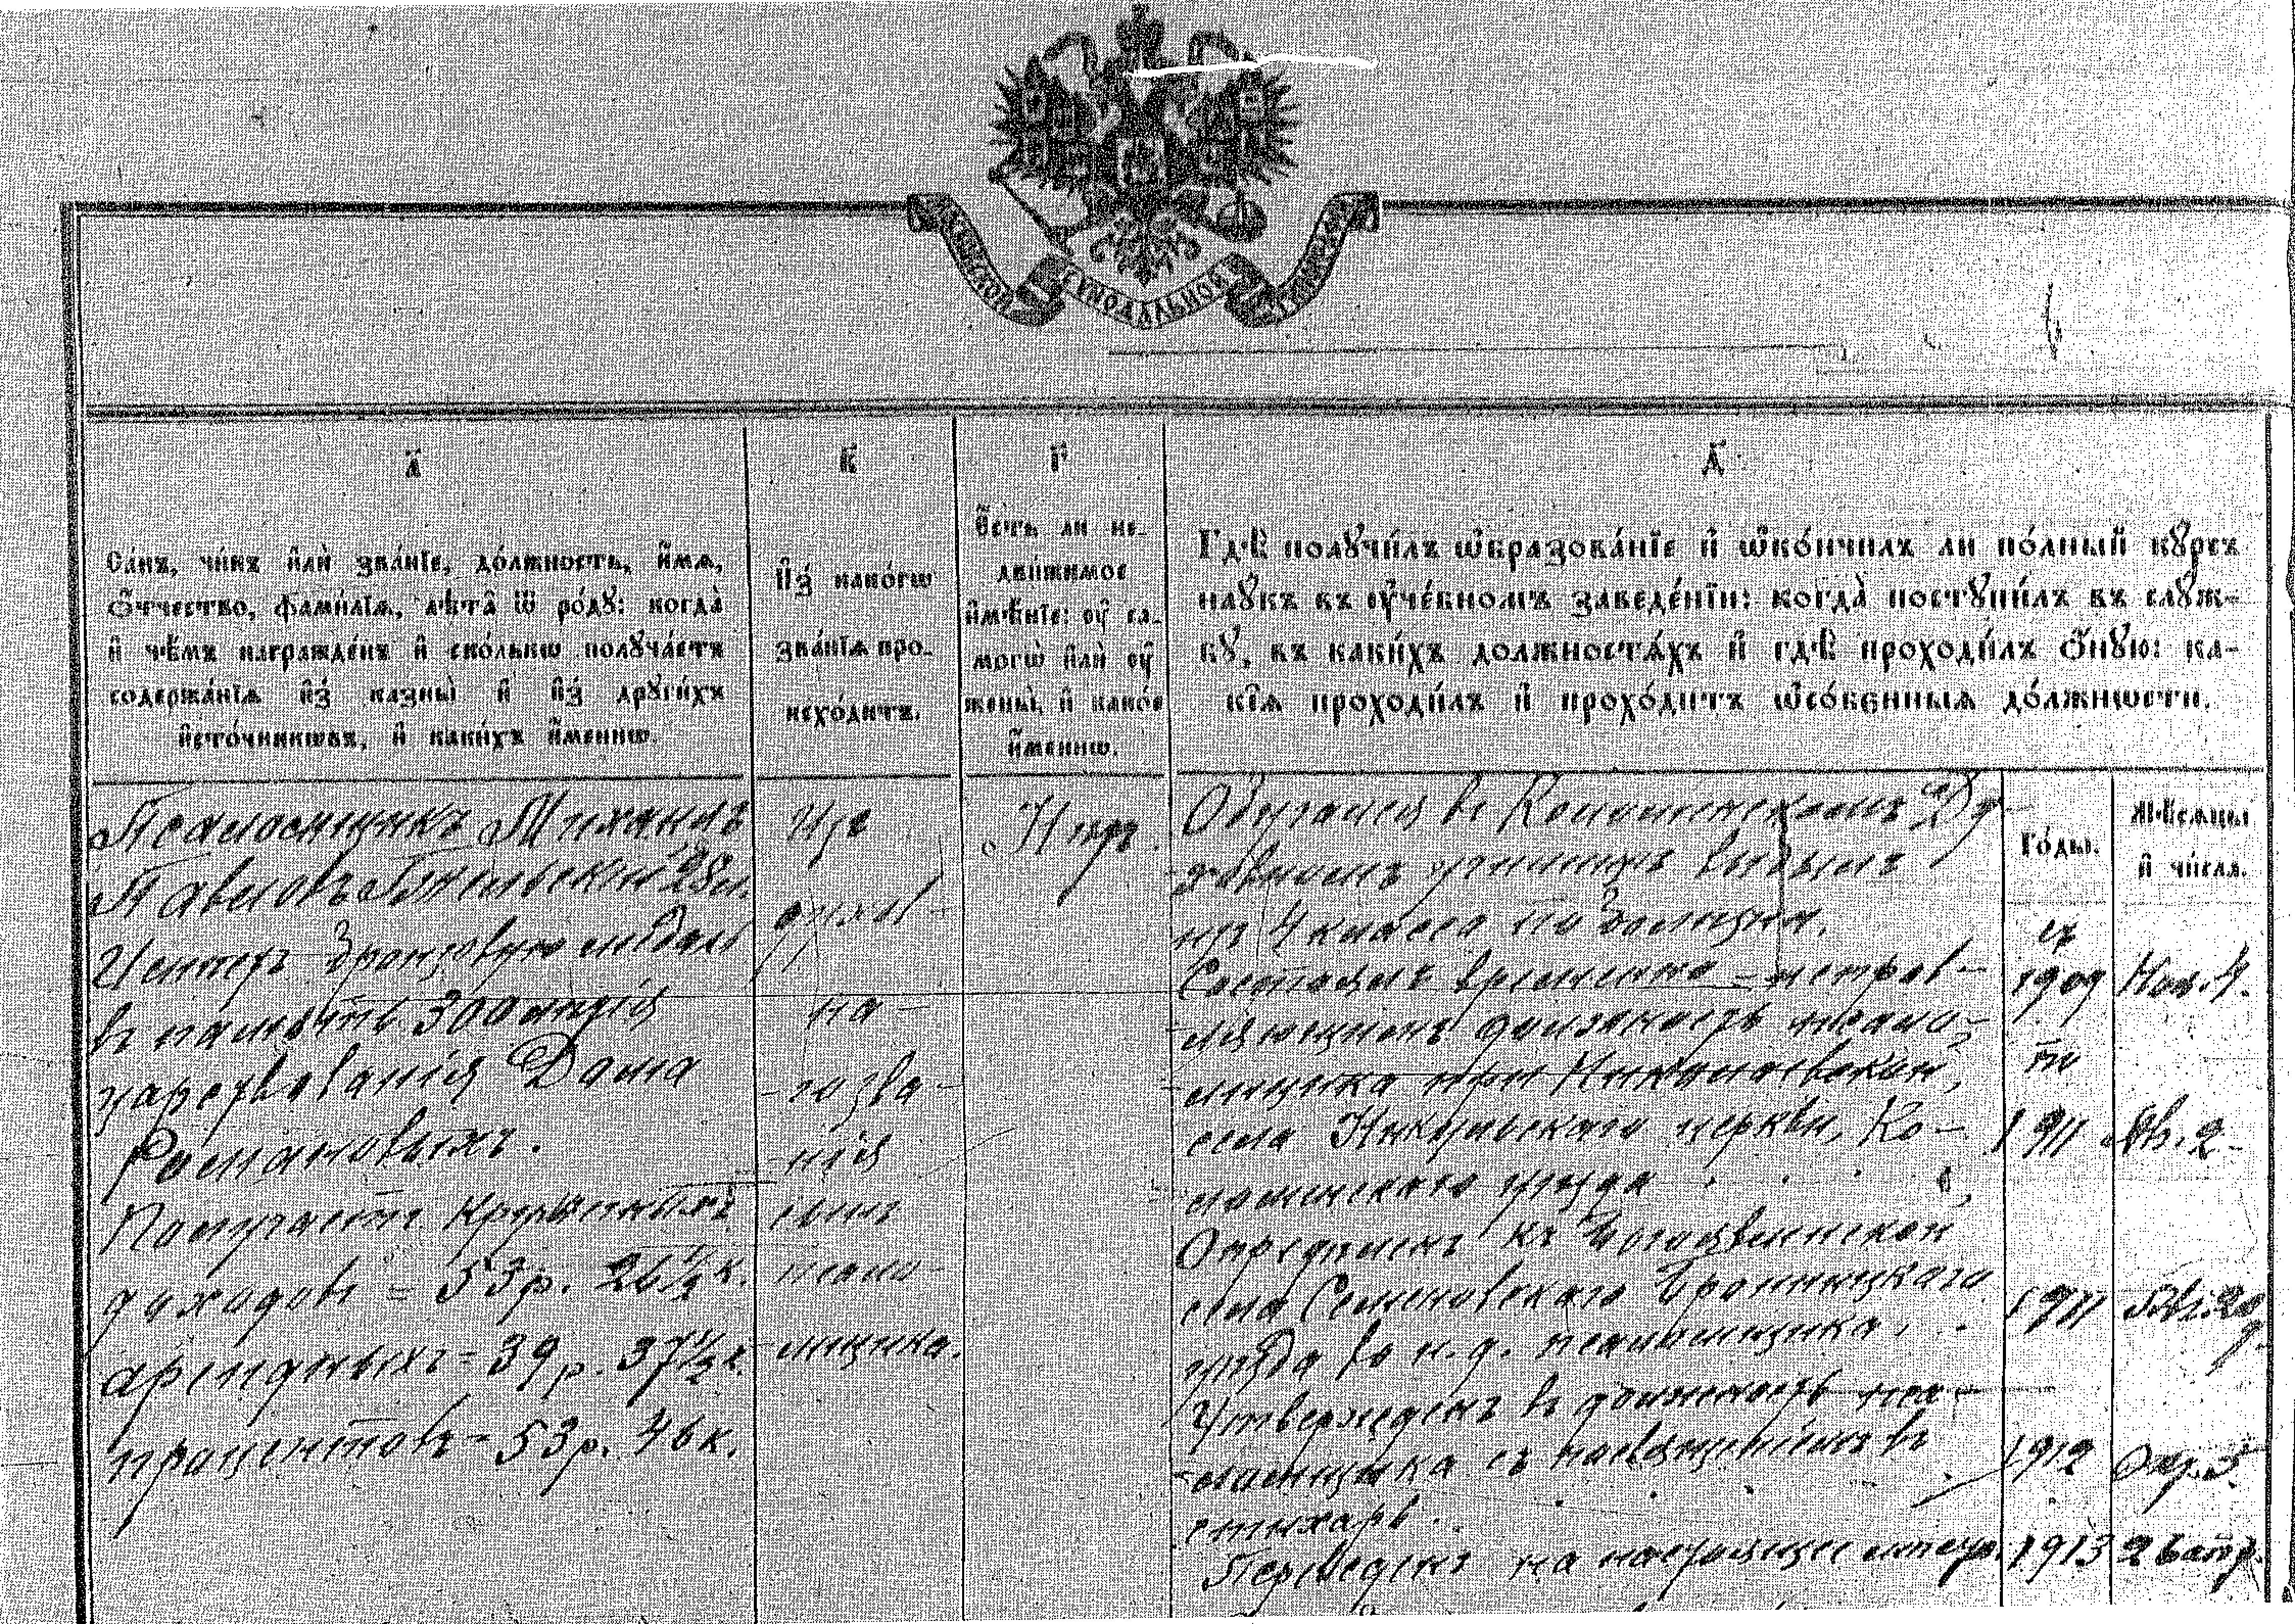 МОСКОВСКОЙ СѴНОДАЛЬНОЙ ТИПОГРАФІИ
А҃
Са́нъ, чи́нъ и҆лѝ зва́нїе, до́лжность, и҆́мѧ,
ѻ҆́тчество, фамі́лїѧ, лѣ́та ѿ ро́дꙋ: когда̀
и҆ чѣ́мъ награжде́нъ и҆ ско́лькѡ полꙋча́етъ
содержа́нїѧ и҆з̾ казны̀ и҆ и҆з̾ дрꙋги́хъ
и҆сто́чникѡвъ, и҆ каки́хъ и҆́меннѡ.
В҃
И҆з̾ како́гѡ
зва́нїѧ про-
исхо́дитъ.
Г҃
Е҆́сть ли не-
дви́жимое
и҆мѣ́нїе: ᲂу҆ са-
могѡ̀ и҆лѝ ᲂу҆
жены̀, и҆ како́е
и҆́меннѡ.
Д҃
Гдѣ̀ полꙋчи́лъ ѡ҆бразова́нїе и҆ ѡ҆ко́нчилъ ли по́лный кꙋ́рсъ
наꙋ́къ въ ᲂу҆че́бномъ заведе́нїи: когда̀ постꙋпи́лъ въ слꙋ́ж-
бꙋ, въ каки́хъ должностѧ́хъ и҆ гдѣ̀ проходи́лъ ѻ҆́нꙋю: ка-
кі́ѧ проходи́лъ и҆ прохо́дитъ ѡ҆со́бенныѧ до́лжнѡсти.
Го́ды.
Мѣ́сѧцы
и҆ чи́сла.
Псаломщикъ Михаилъ
Павловъ 28 л.
Имѣетъ бронзовую медаль
въ память 300 лѣтія
царствованія Дома
Романовыхъ.
Получаетъ кружечныхъ
доходовъ = 53 р. 26½ к.
арендныхъ = 39 р. 37½ к.
процентовъ = 53 р. 46 к.
Изъ
духов-
на-
го зва-
нія
сынъ
псало-
мщика.
Нѣтъ.
Обучался въ Коломенскомъ Ду-
ховномъ училищѣ выбылъ
изъ 4 класса по болѣзни.
Состоялъ временно-исправ-
ляющимъ должность псало-
мщика при Николаевской,
села Никульскаго церкви, Ко-
ломенскаго уѣзда
Опредѣленъ къ Богоявленской
села Семеновскаго Бронницкаго
уѣзда въ и. д. псаломщика.
Утвержденъ въ должность пса-
ломщика съ посвященіемъ въ
стихарь.
Переведенъ на настоящее мѣсто.
съ
1909 Ноя. 4.
по
1911 Ав. 2
1911
1912 Окт. 3.
1913 26 апр.